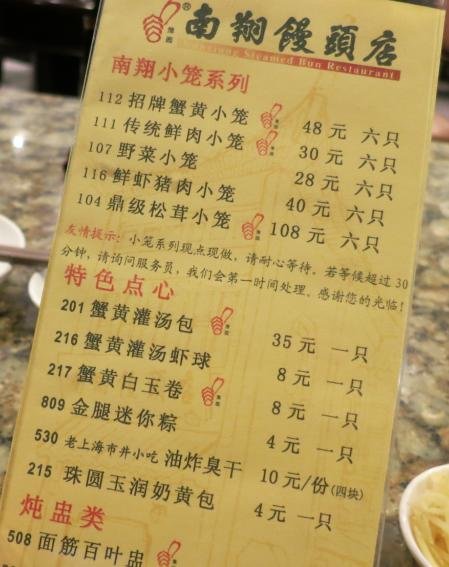 南翔饅頭店
Nanxiang Steamed Bun Restaurant
南翔小笼系列
112 招牌蟹黄小笼 48 元 六只
111 传统鲜肉小笼 30 元 六只
107 野菜小笼 28 元 六只
116 鲜虾猪肉小笼 40 元 六只
104 鼎级松茸小笼 108 元 六只
友情提示：小笼系列现点现做，请耐心等待。若等候超过 30
分钟，请询问服务员，我们会第一时间处理。感谢您的光临！
特色点心
201 蟹黄灌汤包 35 元 一只
216 蟹黄灌汤虾球 8 元 一只
217 蟹黄白玉卷 8 元 一只
809 金腿迷你粽 4 元 一只
530 老上海市井小吃 油炸臭干 10 元/份(四块)
215 珠圆玉润奶黄包 4 元 一只
炖盅类
508 面筋百叶盅